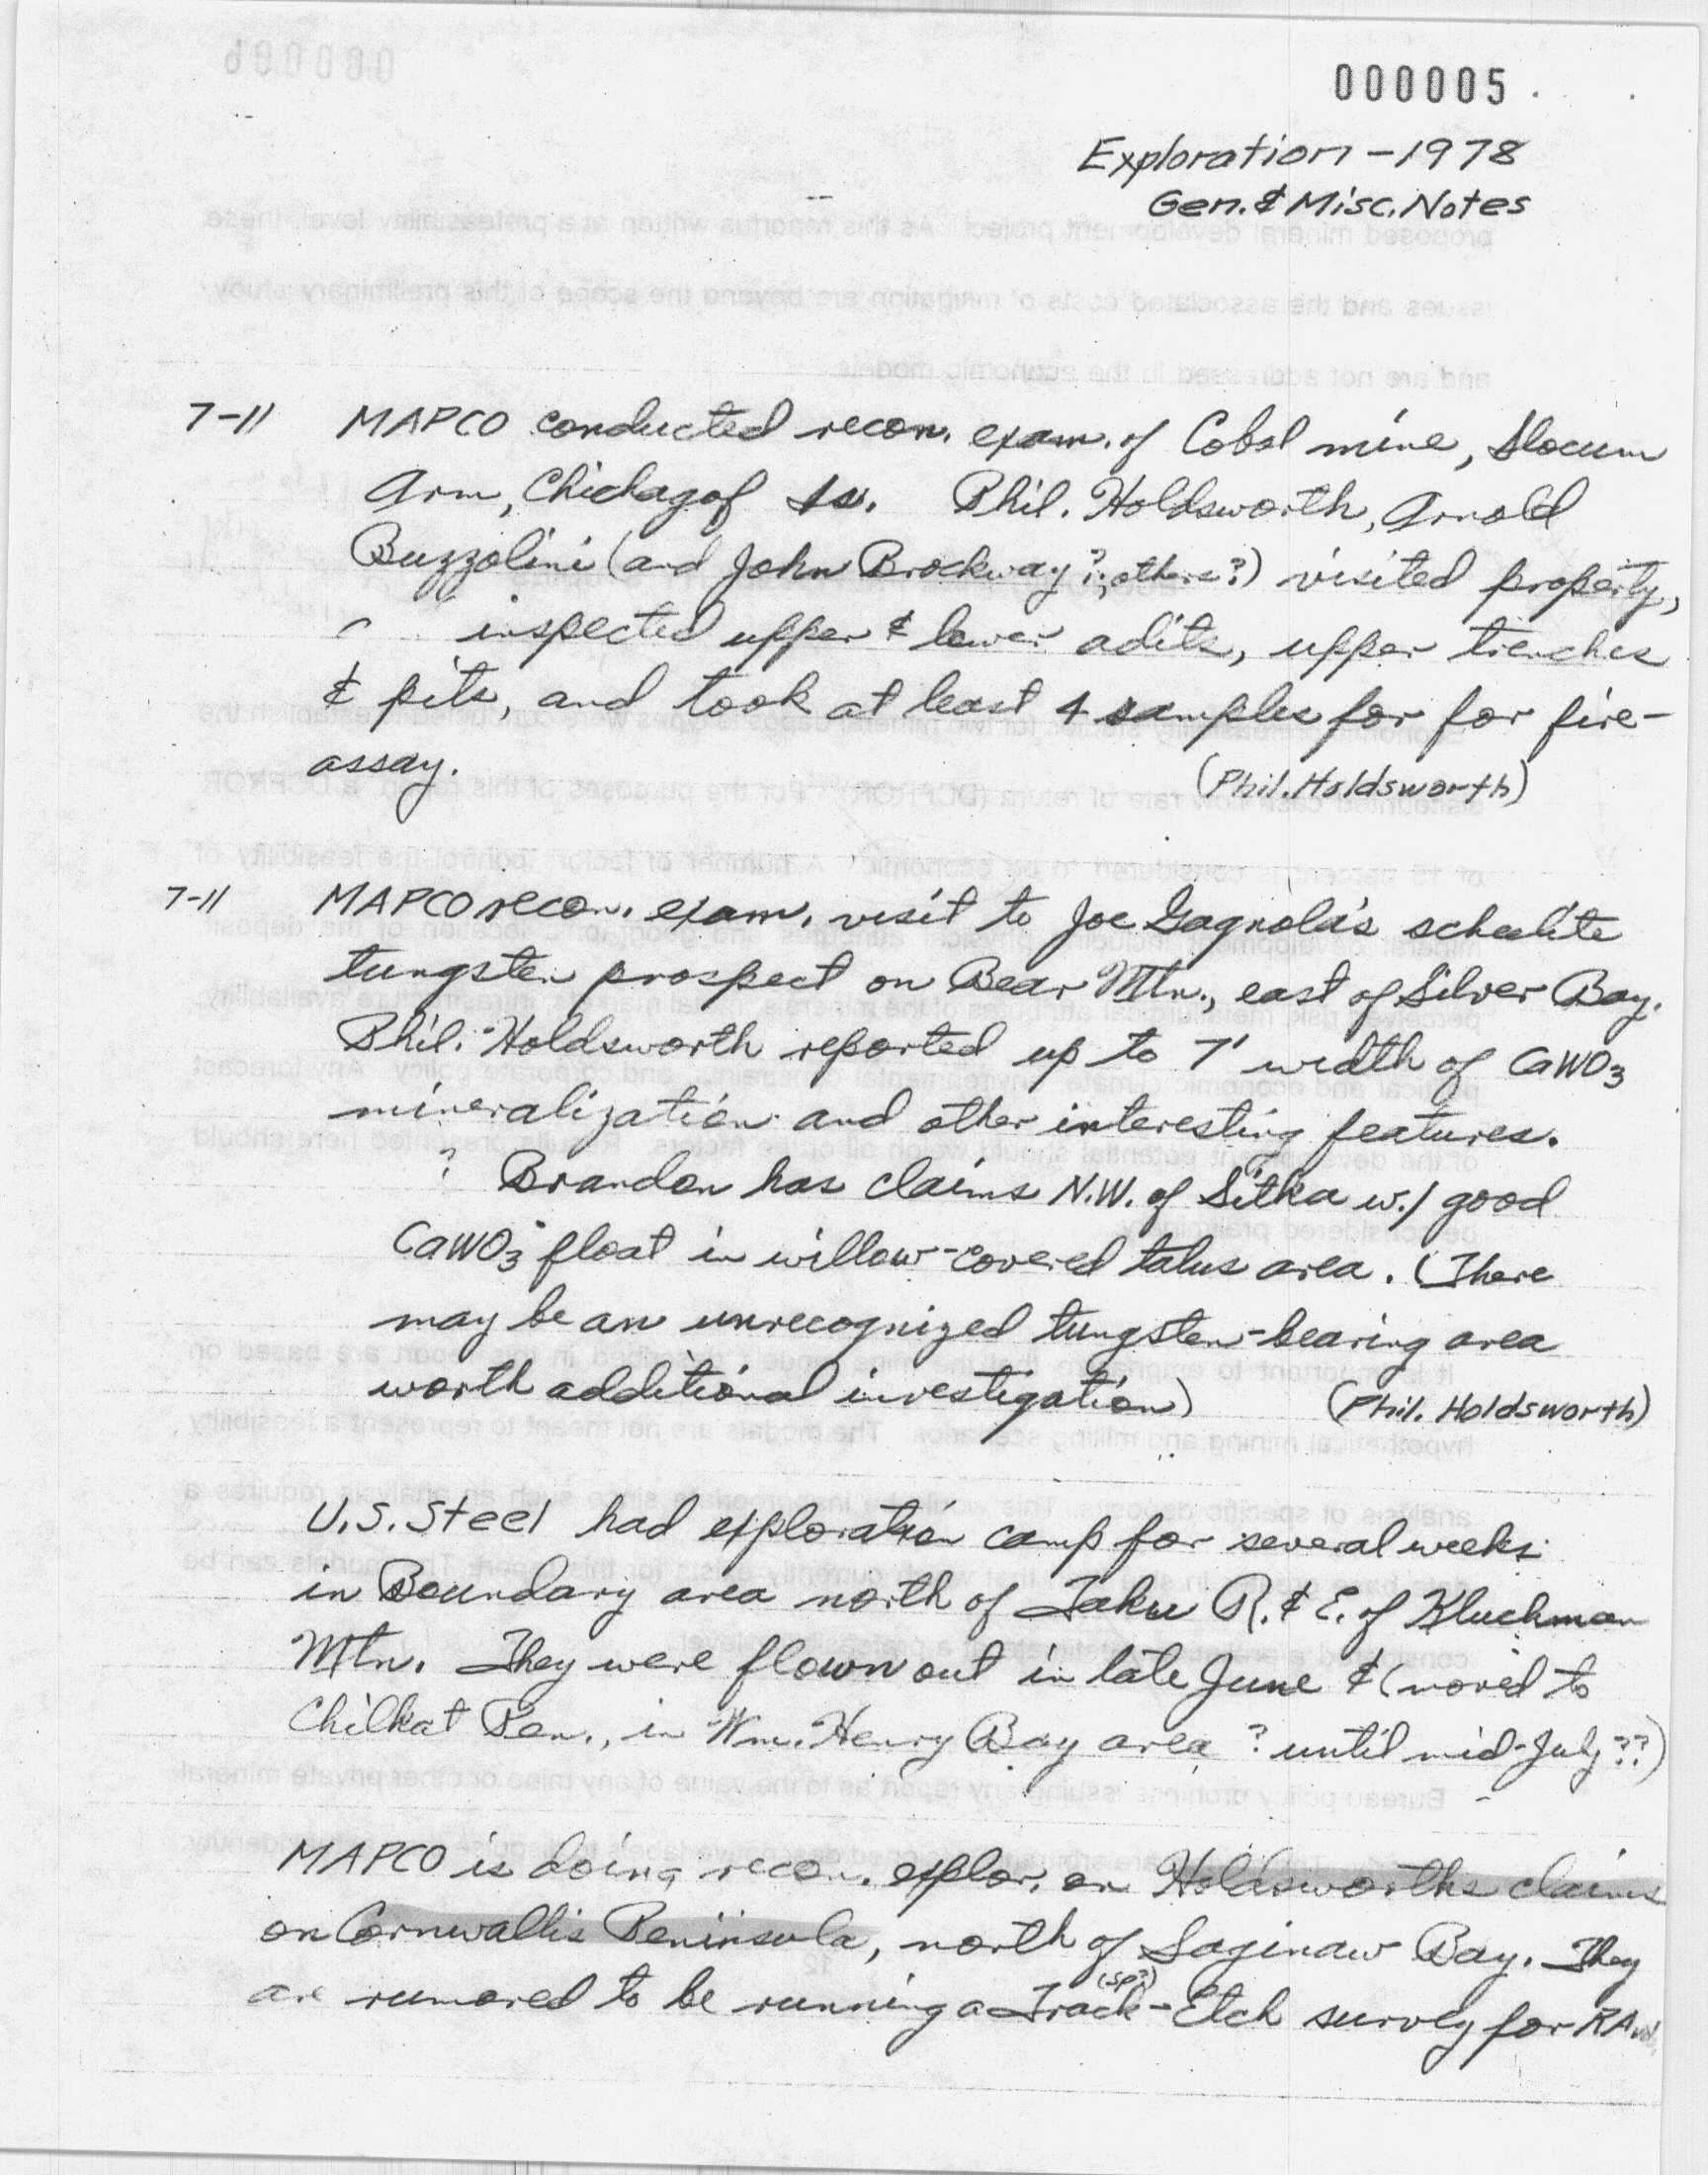 000005
Exploration - 1978
Gen. & Misc. Notes
7-11 MAPCO conducted recon. exam. of Cobol mine, Slocum
Arm, Chichagof Is. Phil. Holdsworth, Arnold
Buzzolini (and John Brockway?; others?) visited property,
inspected upper & lower adits, upper trenches
& pits, and took at least 4 samples for for fire-
assay. (Phil. Holdsworth)
7-11 MAPCO recon. exam. visit to Joe scheelite
tungsten prospect on Bear Mtn., east of Silver Bay.
Phil. Holdsworth reported up to 7' width of CaWO3
mineralization and other interesting features.
? Brandon has claims N.W. of Sitka w./ good
CaWO3 float in willow-covered talus area. (There
may be an unrecognized tungsten-bearing area
worth additional investigation) (Phil. Holdsworth)
U.S. Steel had exploration camp for several weeks
in Boundary area north of Taku R. & E. of Kluchman
Mtn. They were flown out in late June & (moved to
Chilkat Pen., in Wm. Henry Bay area ? until mid-July??)
MAPCO is doing recon. explor. on Holdsworths claims
on Cornwallis Peninsula, north of Saginaw Bay. They
are rumored to be running a Track-Etch (sp?) survey for